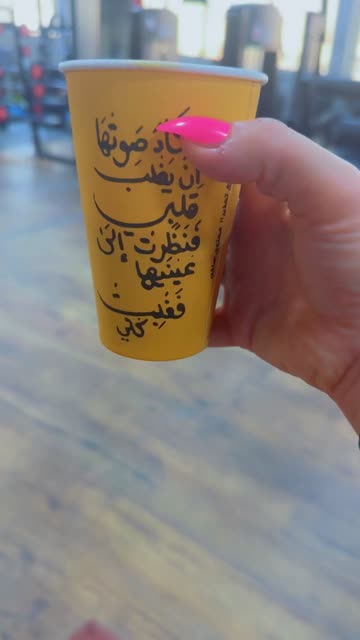 كَادَ صَوتُهَا
أن يَغلب
قَلبي
فَنَظَرتُ إلىَ
عَينيهَا
فَغُلِبتُ
كُلي